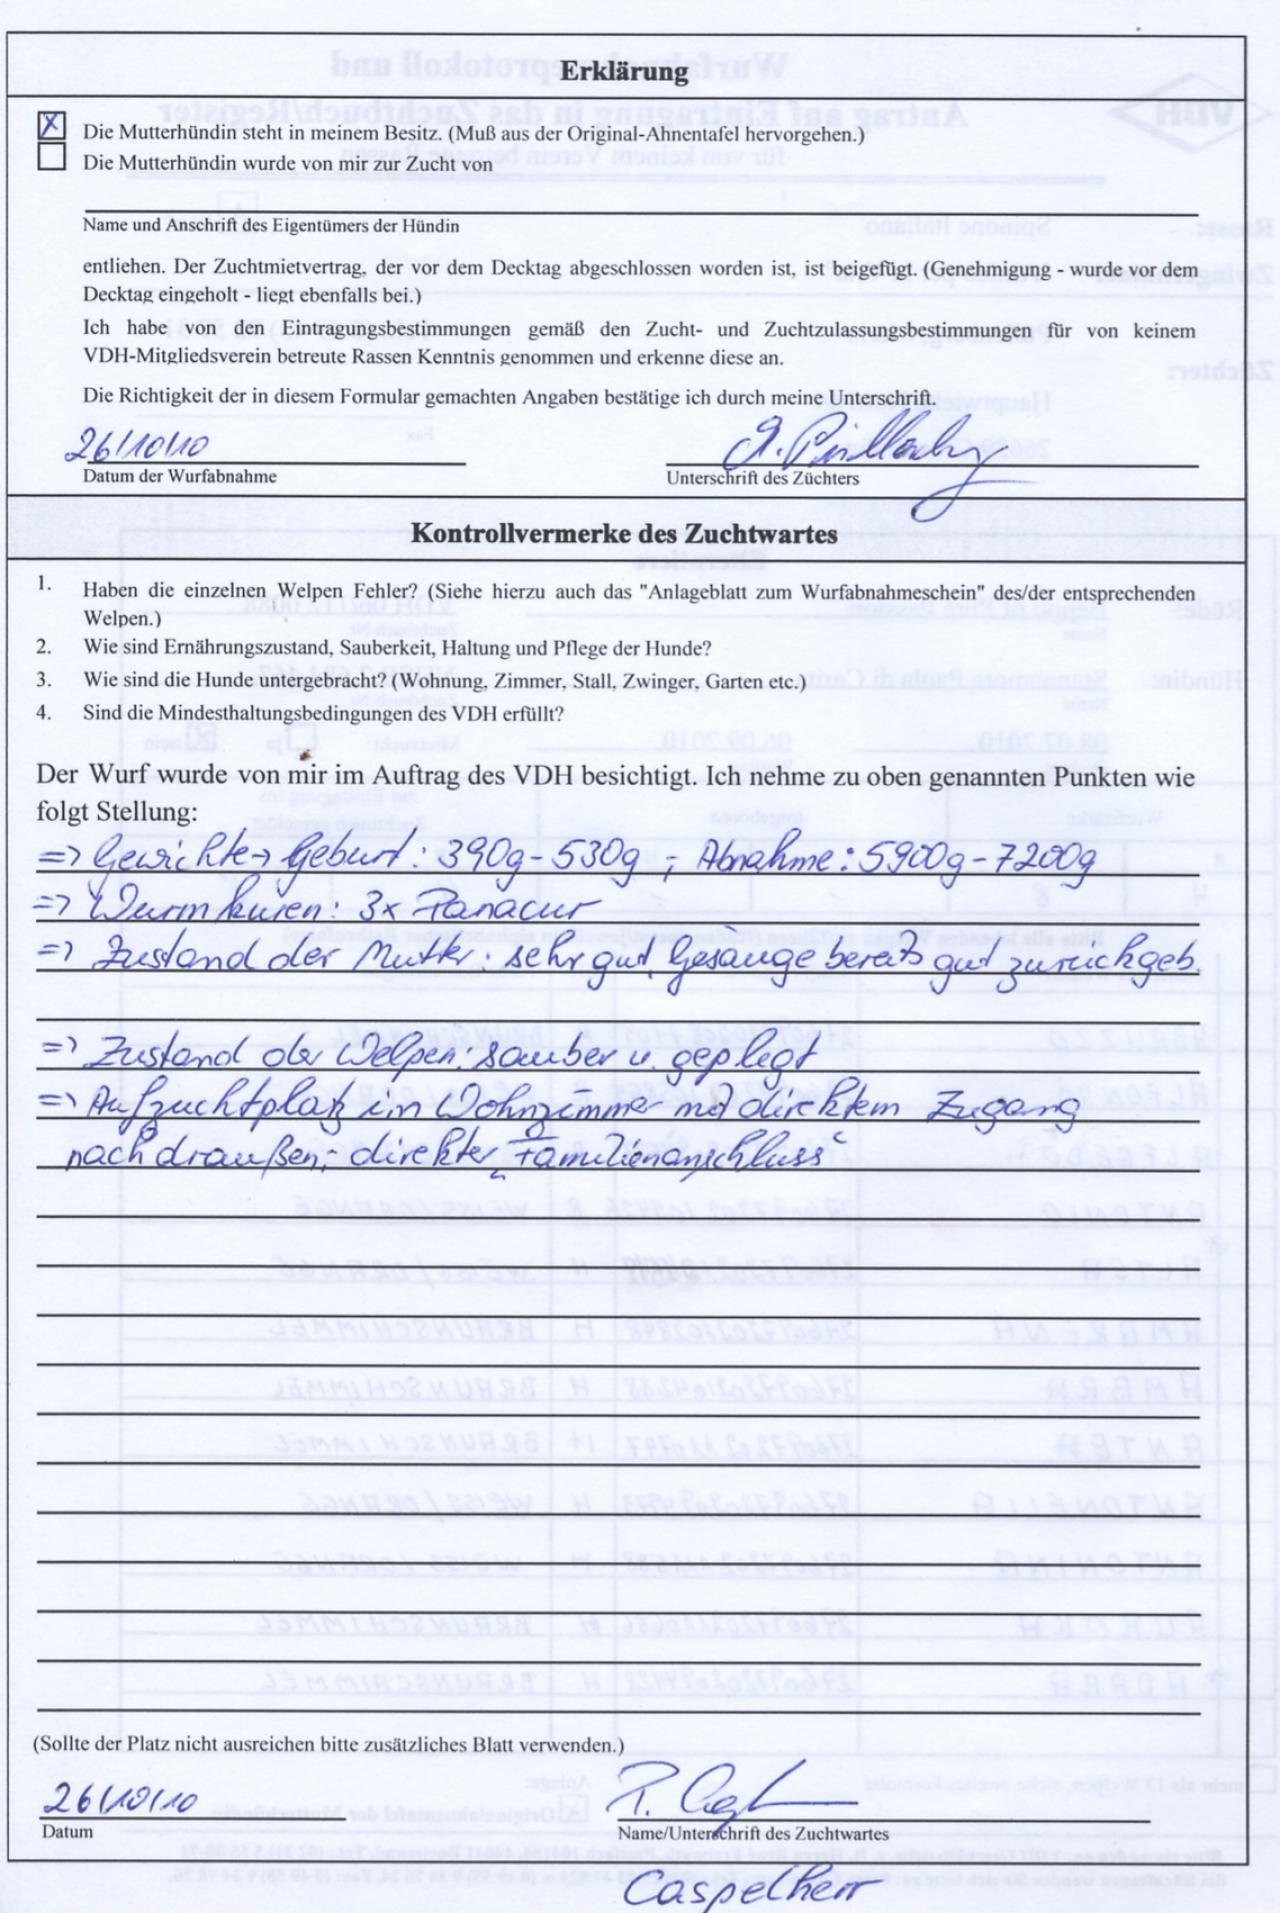 Erklärung
X Die Mutterhündin steht in meinem Besitz. (Muß aus der Original-Ahnentafel hervorgehen.)
Die Mutterhündin wurde von mir zur Zucht von
Name und Anschrift des Eigentümers der Hündin
entliehen. Der Zuchtmietvertrag, der vor dem Decktag abgeschlossen worden ist, ist beigefügt. (Genehmigung - wurde vor dem
Decktag eingeholt - liegt ebenfalls bei.)
Ich habe von den Eintragungsbestimmungen gemäß den Zucht- und Zuchtzulassungsbestimmungen für von keinem
VDH-Mitgliedsverein betreute Rassen Kenntnis genommen und erkenne diese an.
Die Richtigkeit der in diesem Formular gemachten Angaben bestätige ich durch meine Unterschrift.
26/10/10
Datum der Wurfabnahme
Unterschrift des Züchters
Kontrollvermerke des Zuchtwartes
1. Haben die einzelnen Welpen Fehler? (Siehe hierzu auch das "Anlageblatt zum Wurfabnahmeschein" des/der entsprechenden
Welpen.)
2. Wie sind Ernährungszustand, Sauberkeit, Haltung und Pflege der Hunde?
3. Wie sind die Hunde untergebracht? (Wohnung, Zimmer, Stall, Zwinger, Garten etc.)
4. Sind die Mindesthaltungsbedingungen des VDH erfüllt?
Der Wurf wurde von mir im Auftrag des VDH besichtigt. Ich nehme zu oben genannten Punkten wie
folgt Stellung:
=> Gewichte→ Geburt: 390g-530g ; Abnahme: 5900g-7200g
=> Wurmkuren: 3x Panacur
=> Zustand der Mutter: sehr gut, Gesäuge bereits gut zurückgeb.
=> Zustand der Welpen: sauber u. geplegt
=> Aufzuchtplatz im Wohnzimmer mit direktem Zugang
nach draußen; direkter Familienanschluss
(Sollte der Platz nicht ausreichen bitte zusätzliches Blatt verwenden.)
26/10/10
Datum
Name/Unterschrift des Zuchtwartes
Caspelherr